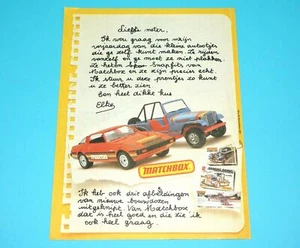 Liefste meter,
Ik wou graag voor mijn
verjaardag van die kleine autootjes
die ge zelf kunt maken. Ze rijden
vanzelf en ge moet ze niet plakken.
Ze heten Snapfits van
Matchbox en ze zijn precies echt.
Ik stuur u deze prentjes zo kunt
u ze beter zien
Een heel dikke kus
Elke
MATCHBOX
Ik heb ook drie afbeeldingen
van nieuwe bouwdozen
uitgeknipt. Van Matchbox
dat is heel goed en die zie ik
ook heel graag.